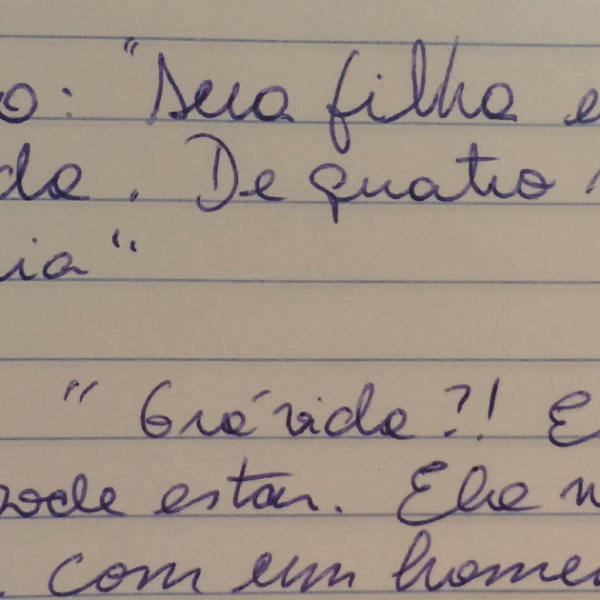 o: "Sua filha e
da. De quatro
ia"
"Grávida?! E
pode estar. Ela n
. com um homem